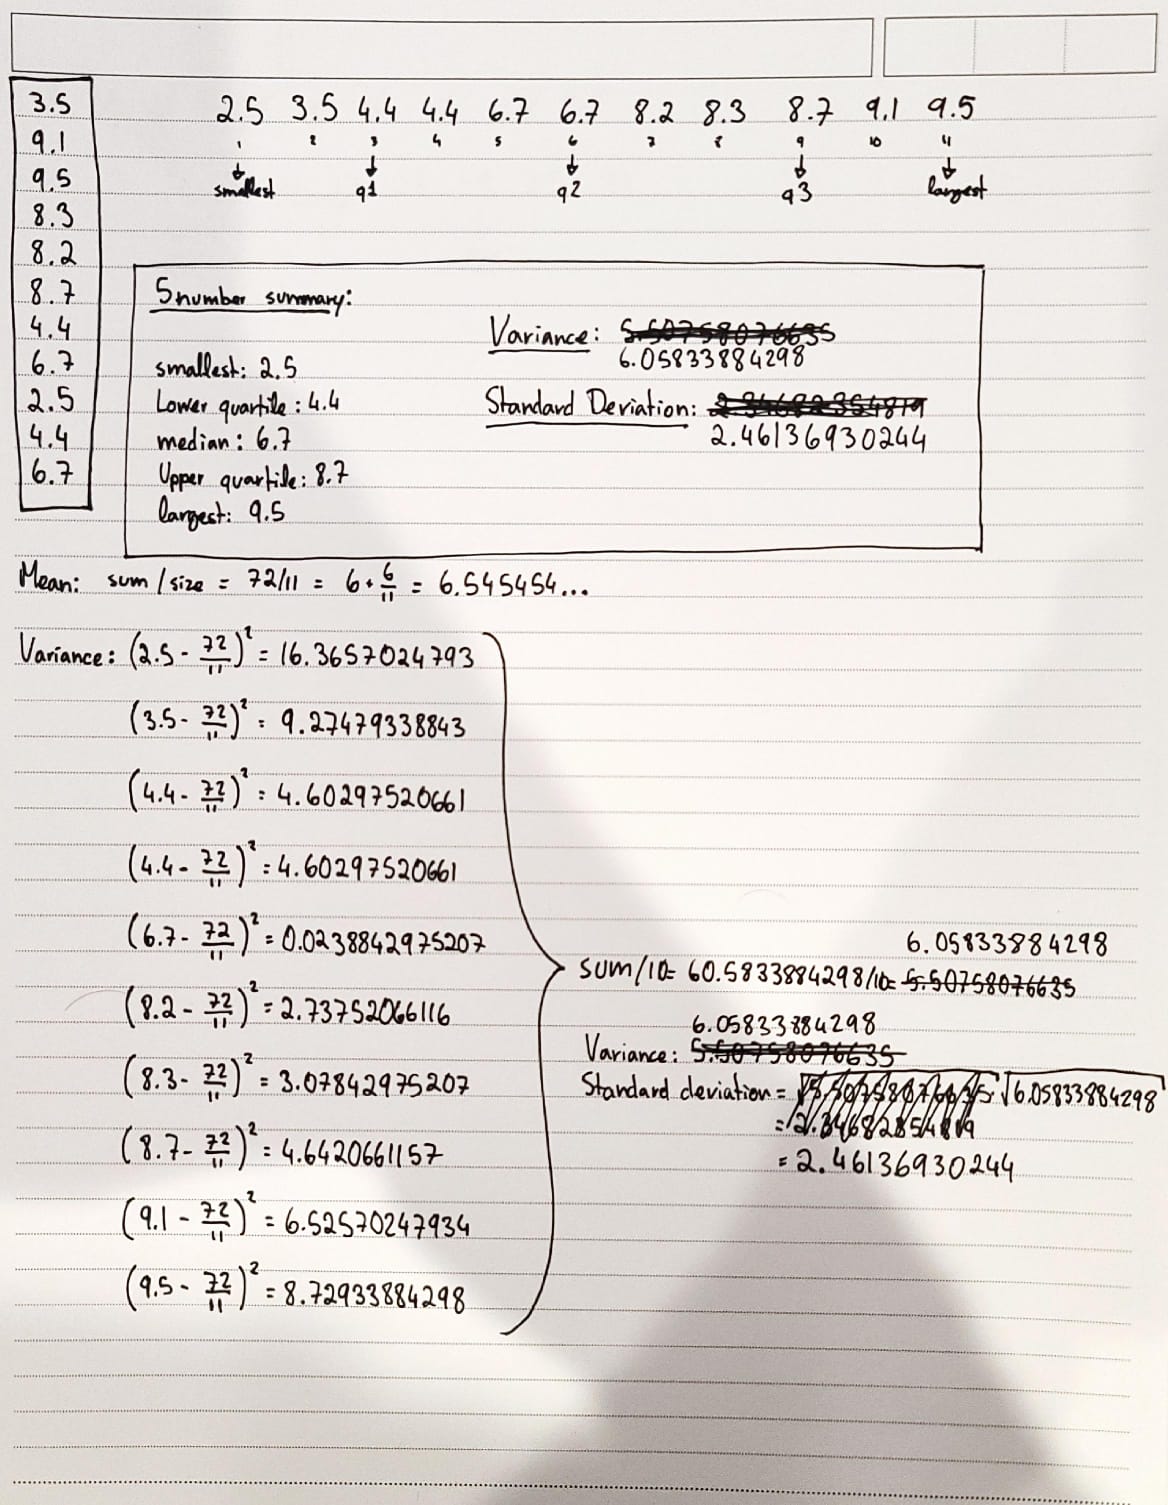 3.5
9.1
9.5
8.3
8.2
8.7
4.4
6.7
2.5
4.4
6.7
2.5 3.5 4.4 4.4 6.7 6.7 8.2 8.3 8.7 9.1 9.5
1 2 3 4 5 6 7 8 9 10 11
smallest q1 q2 q3 largest
5 number summary:
smallest: 2.5
Lower quartile: 4.4
median: 6.7
Upper quartile: 8.7
largest: 9.5
Variance: 5.50758076635
6.05833884298
Standard Deviation: 2.34682354819
2.46136930244
Mean: sum / size = 72/11 = 6 + 6/11 = 6.545454...
Variance: (2.5 - 72/11)² = 16.3657024793
(3.5 - 72/11)² = 9.27479338843
(4.4 - 72/11)² = 4.60297520661
(4.4 - 72/11)² = 4.60297520661
(6.7 - 72/11)² = 0.0238842975207
(8.2 - 72/11)² = 2.73752066116
(8.3 - 72/11)² = 3.07842975207
(8.7 - 72/11)² = 4.6420661157
(9.1 - 72/11)² = 6.52570247934
(9.5 - 72/11)² = 8.72933884298
6.05833884298
sum/10 = 60.5833884298/10 = 5.50758076635
6.05833884298
Variance: 5.50758076635
Standard deviation = √5.50758076635 √6.05833884298
= 2.46136930244